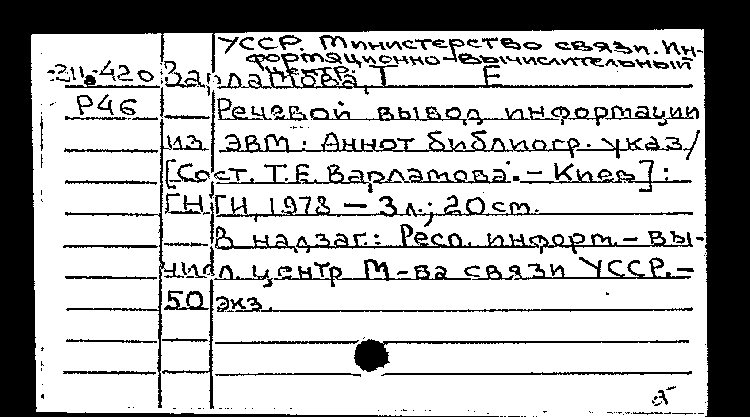 УССР. Министерство связи. Ин-
формационно-вычислительный
центр.
211.420 Варламова, Т Е
Р46 Речевой вывод информации
из ЭВМ: Аннот библиогр. указ/
[Сост. Т.Е. Варламова. - Киев]:
[Н ГН, 1978 — 3 л.; 20 ст.
В надзаг.: Респ. информ.-вы-
числ. центр М-ва связи УССР.-
50 экз.